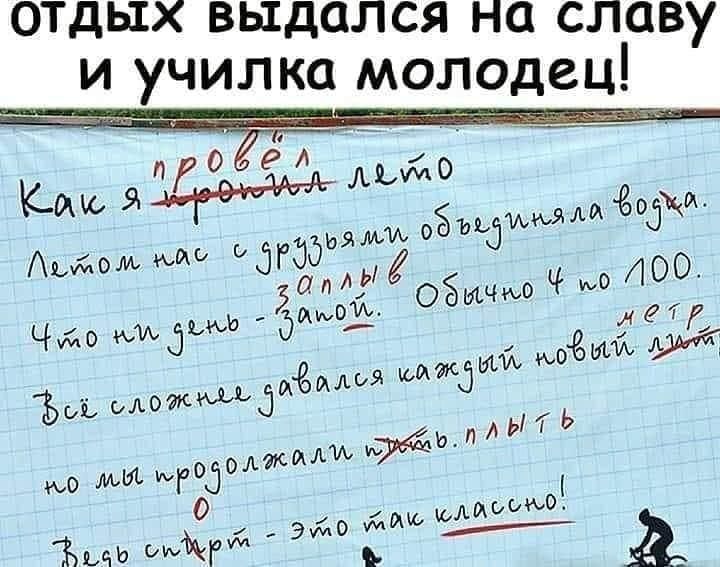 отдых выдался на славу
и училка молодец!
провёл
Как я пропил лето
Летом нас с друзьями объединяла водка.
заплыв
Что ни день - запой. Обычно 4 по 100.
метр
Всё сложнее давался каждый новый лит
но мы продолжали пить. плыть
о
Ведь спирт - это так классно!